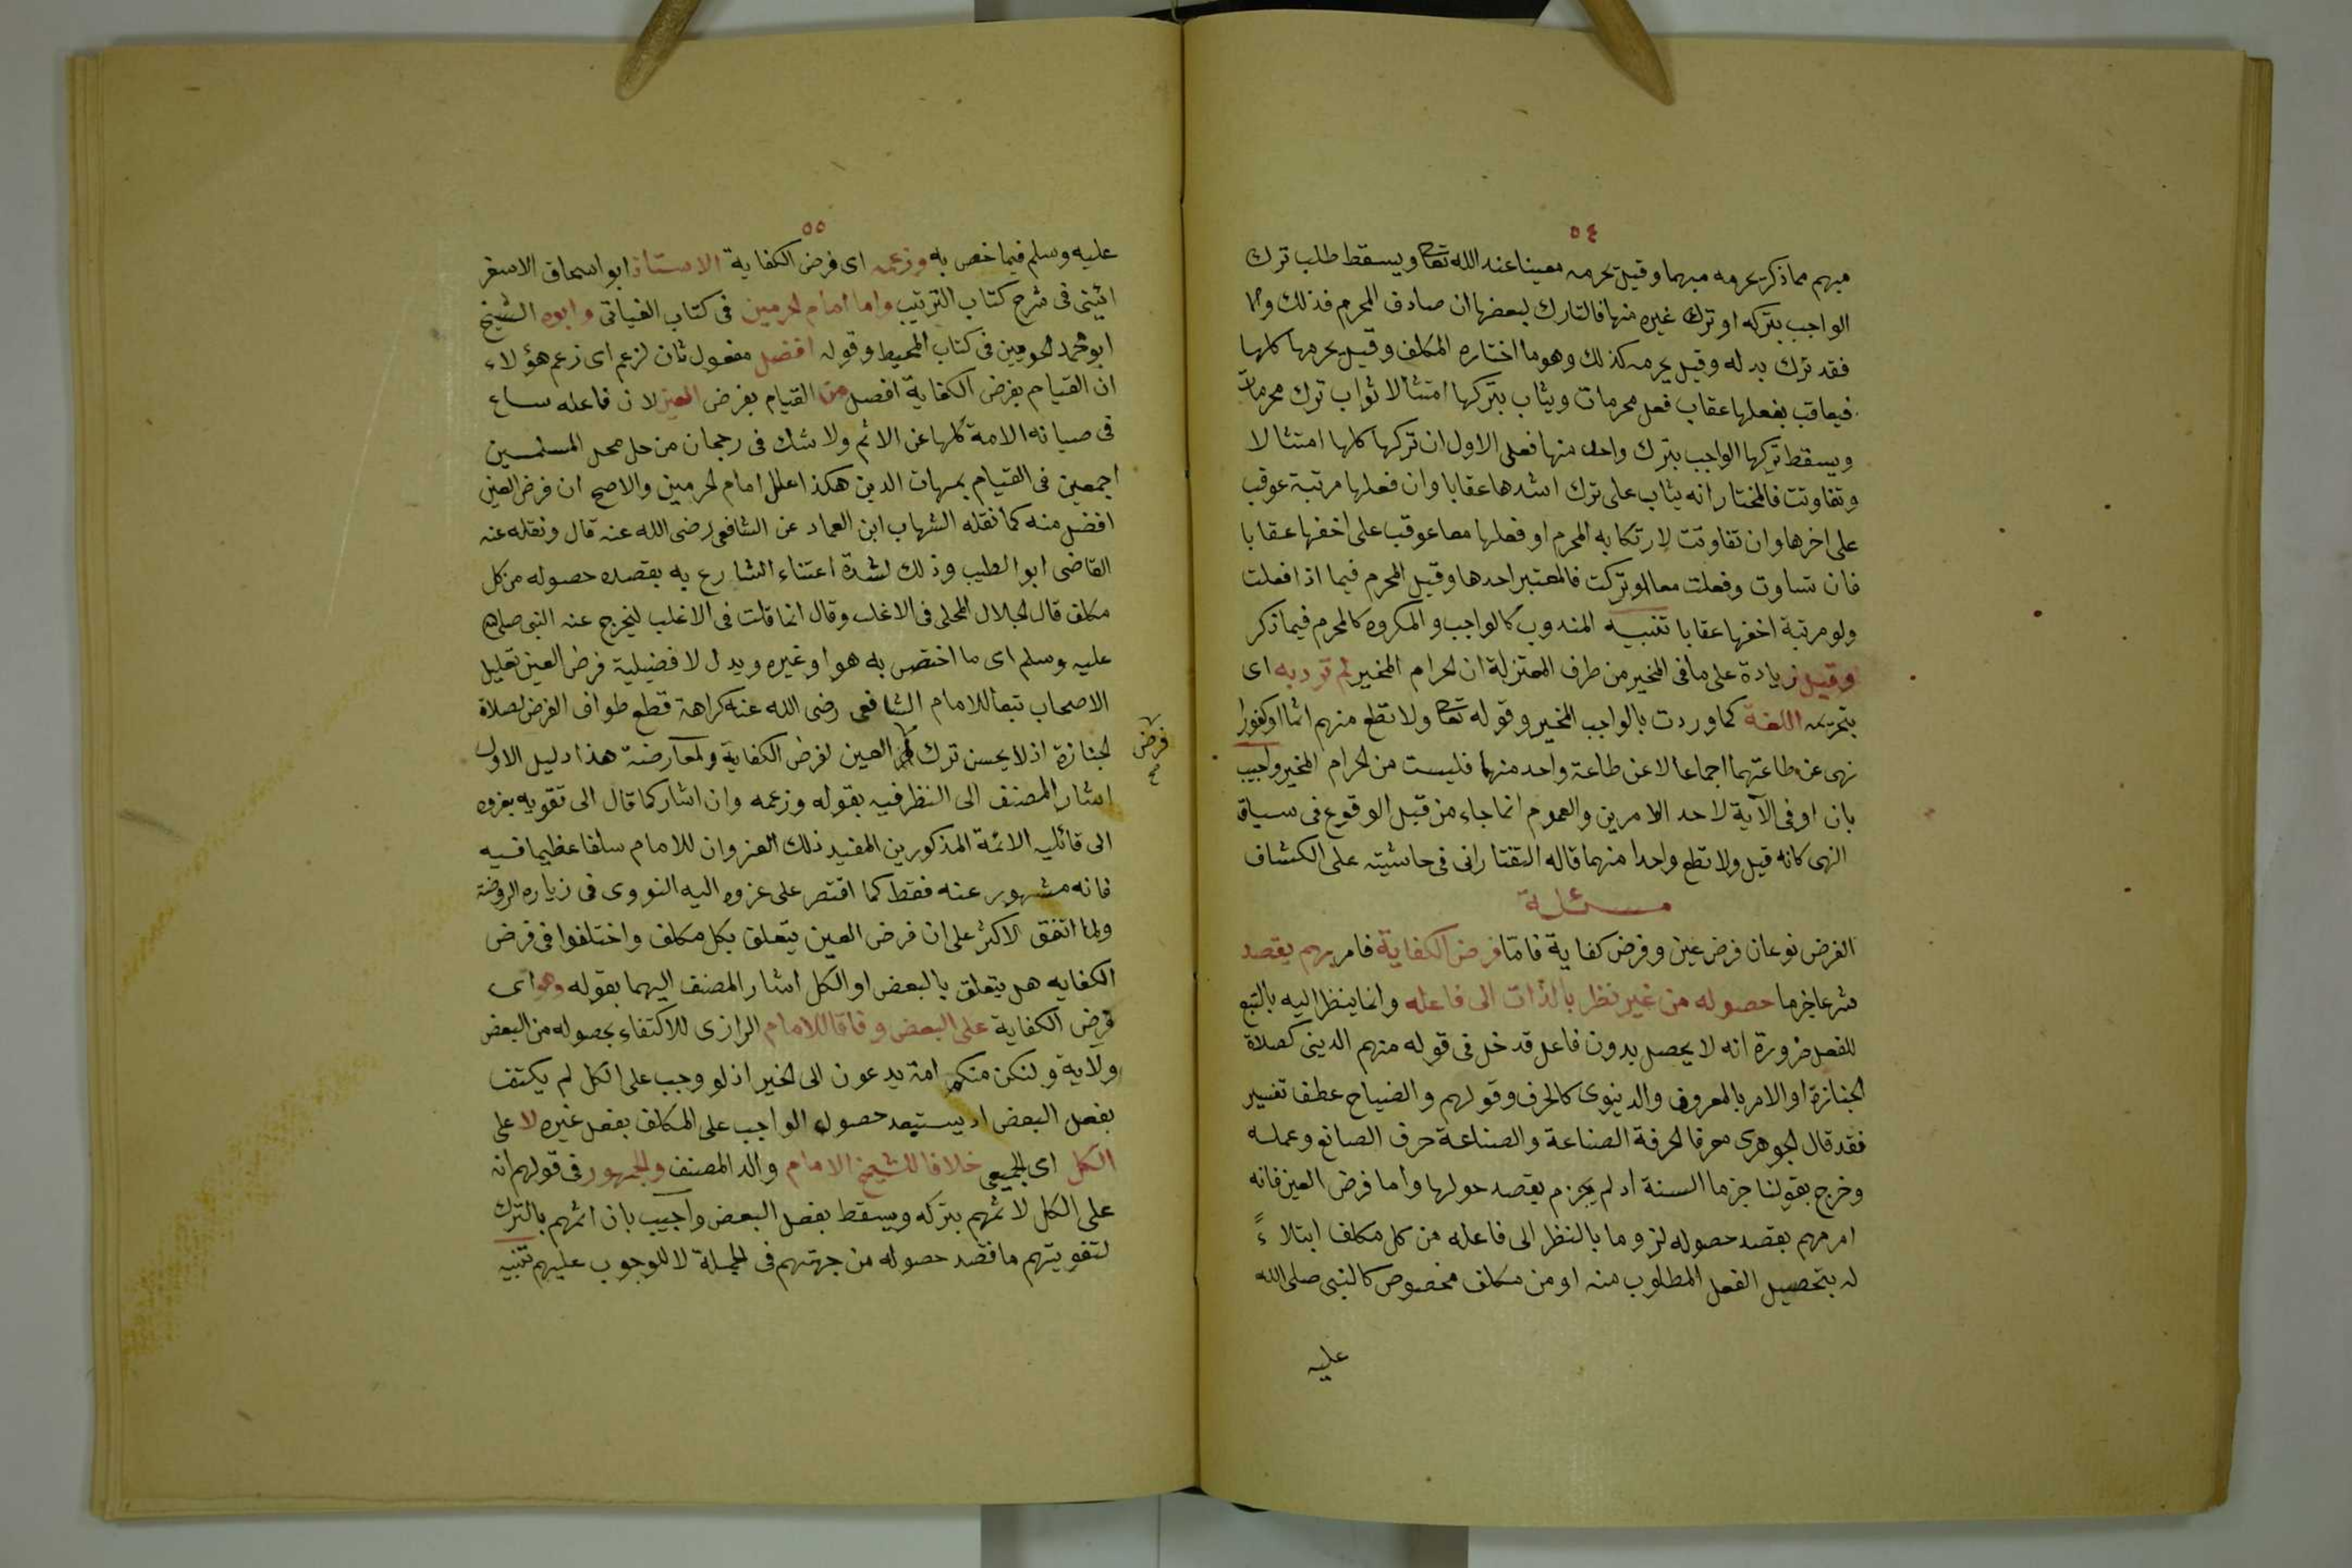 ٥٤
مبهم مما ذكر بحرمه مبهما وقيل بحرمه معينا عند الله تعا ويسقط طلب ترك
الواجب بتركه او ترك غيره منها فالتارك لبعضها ان صادف المحرم فذلك والا
فقد ترك بدله وقيل يحرمه كذلك وهو ما اختاره المكلف وقيل يحرمها كلها
فيعاقب بفعلها عقاب فعل محرمات ويثاب بتركها امتثالا ثواب ترك محرمات
ويسقط تركها الواجب بترك واحد منها فعلى الاول ان تركها كلها امتثالا
وتفاوتت فالمختار انه يثاب على ترك اشدها عقابا وان فعلها مرتبة عوقب
على اخرها وان تفاوتت لارتكابه المحرم او فعلها معا عوقب على اخفها عقابا
فان تساوت وفعلت معا او تركت فالمعتبر احدها وقيل المحرم فيما اذا فعلت
ولو مرتبة اخفها عقابا تنبيه المندوب كالواجب والمكروه كالمحرم فيما ذكر
وقيل زيادة على ما فى المخير من طرف المعتزلة ان الحرام المخير لم ترد به اى
بتحريمه اللغة كما وردت بالواجب المخير وقوله تعا ولا تطع منهم اثما او كفورا
نهى عن طاعتهما اجماعا لا عن طاعة واحد منهما فليست من الحرام المخير واجيب
بان او فى الآية لاحد الامرين والعموم انما جاء من قبل الوقوع فى سياق
النهى كانه قيل ولا تطع واحدا منهما قاله التفتارانى فى حاشيته على الكشاف
مسئلة
الفرض نوعان فرض عين وفرض كفاية فامّا فرض الكفاية فامر مهم يقصد
شرعا جزما حصوله من غير نظر بالذات الى فاعله وانما ينظر اليه بالتبع
للفعل ضرورة انه لا يحصل بدون فاعل قدخل فى قوله منهم الدينى كصلاة
الجنازة او الامر بالمعروف والدنيوى كالحرف وقولهم والضياح عطف تفسير
فقد قال الجوهرى معرفا الحرفة الصناعة والصناعة حرف الصانع وعمله
وخرج بقولنا جزما السنة اد لم يجزم بقصد حولها وأما فرض العين فانه
امر مهم بقصد حصوله لزوما بالنظر الى فاعله من كل مكلف ابتلاءً
له بتحصيل الفعل المطلوب منه او من مكلف مخصوص كالنبى صلى الله
عليه
٥٥
عليه وسلم فيما خص به وزعمه اى فرض الكفاية الاستاذ ابو اسحاق الاسفر
ائينى فى شرح كتاب الترتيب واما امام الحرمين فى كتاب الغياثى وابوه الشيخ
ابو محمد الجوينى فى كتاب المحيط وقوله افضل مفعول ثان لزعم اى زعم هؤلاء
ان القيام بفرض الكفاية افضل من القيام بفرض العين لان فاعله ساع
فى صيانه الامة كلها عن الاثم ولا شك فى رجحان من حل محل المسلمين
اجمعين فى القيام بمهات الدين هكذا علل امام الحرمين والاصح ان فرض العين
افضل منه كما نقله الشهاب ابن العماد عن الشافعى رضى الله عنه قال ونقله عنه
القاضى ابو الطيب وذلك لشدة اعتناء الشارع به بقصده حصوله من كل
مكلف قال الجلال المحلى فى الاغلب وقال انما قلت فى الاغلب ليخرج عنه النبى صلى الله
عليه وسلم اى ما اختص به هو او غيره ويدل لافضيلية فرض العين تعليل
الاصحاب تبعا للامام الشافعى رضى الله عنه كراهة قطع طواف الفرض لصلاة
الجنازة اذ لا يحسن ترك العين لفرض الكفاية ولمعارضة هذا دليل الاول
فرض
صح
اشار المصنف الى النظر فيه بقوله وزعمه وان اشار كما قال الى تقويه بعزوه
الى قائليه الائمة المذكورين المفيد ذلك العزو ان للامام سلفا عظيما فيه
فانه مشهور عنه فقط كما اقتصر على عزوه اليه النووى فى زياده الروضة
ولما اتفق الاكثر على ان فرض العين يتعلق بكل مكلف واختلفوا فى فرض
الكفايه هل يتعلق بالبعض او الكل اشار المصنف اليهما بقوله وهو اى
فرض الكفاية على البعض وفاقا للامام الرازى للاكتفاء بحصوله من البعض
ولاية ولتكن منكم امة يدعون الى الخير اذ لو وجب على الكل لم يكتف
بفعل البعض اد يستبعد حصوله الواجب على المكلف بفعل غيره لا على
الكل اى الجميع خلافا للشيخ الامام والد المصنف والجمهور فى قولهم انه
على الكل لاثمهم بتركه ويسقط بفعل البعض واجيب بان اثمهم بالترك
لتفويتهم ما قصد حصوله من جهتهم فى الجملة لا للوجوب عليهم تنبيه